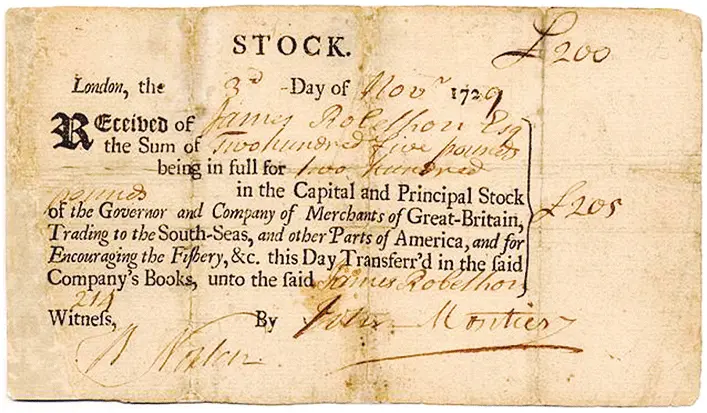 £200
STOCK.
London, the 3d Day of Novr 1729
Received of James Robethon Esq
the Sum of Two hundred five pounds
being in full for two hundred
pounds in the Capital and Principal Stock
of the Governor and Company of Merchants of Great-Britain, £205
Trading to the South-Seas, and other Parts of America, and for
Encouraging the Fiſhery, &c. this Day Transferr'd in the ſaid
Company's Books, unto the ſaid James Robethon
Witneſs, By John